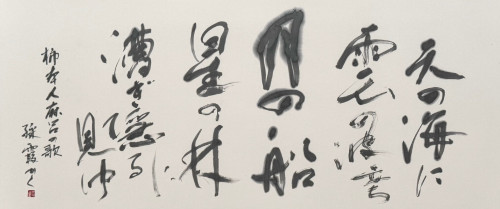 天の海に
雲の波立
月の船
星の林
漕ぎ隠る
見ゆ
柿本人麻呂の歌
霞かく